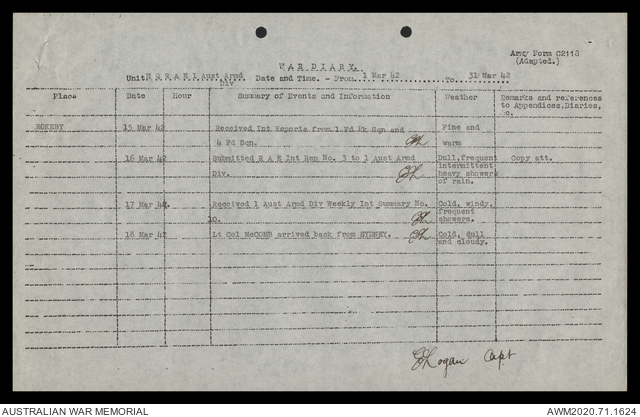 Army Form C2118
(Adapted.)
WAR DIARY
Unit H Q R A E 1 Aust Armd Div Date and Time. - From 1 Mar 42 To 31 Mar 42
Place Date Hour Summary of Events and Information Weather Remarks and references
to Appendices, Diaries,
&c.
15 Mar 42 Received Int Reports from 1 Fd Pk Sqn and Fine and
4 Fd Sqn. warm
16 Mar 42 Submitted R A E Int Rep No. 3 to 1 Aust Armd Dull, frequent Copy att.
Div. intermittent
heavy showers
of rain.
17 Mar 42. Received 1 Aust Armd Div Weekly Int Summary No. Cold, windy,
10. frequent
showers.
18 Mar 42 Lt Col McCOMB arrived back from SYDNEY. Cold, dull
and cloudy.
Logan Capt
AUSTRALIAN WAR MEMORIAL AWM2020.71.1624